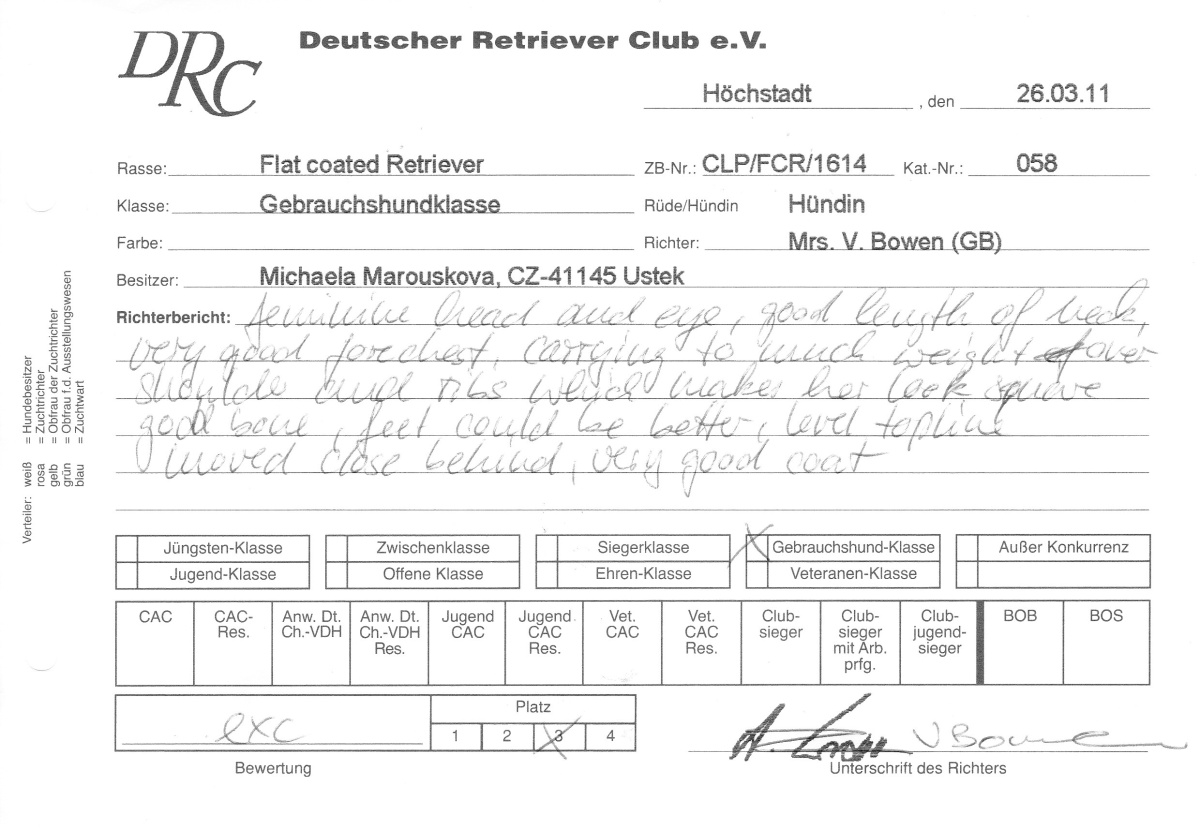 DRC
Deutscher Retriever Club e.V.
Höchstadt , den 26.03.11
Rasse: Flat coated Retriever ZB-Nr.: CLP/FCR/1614 Kat.-Nr.: 058
Klasse: Gebrauchshundklasse Rüde/Hündin Hündin
Farbe: Richter: Mrs. V. Bowen (GB)
Besitzer: Michaela Marouskova, CZ-41145 Ustek
Richterbericht: feminine head and eye, good length of neck,
very good forechest, carrying to much weight over
shoulder and ribs which makes her look square
good bone, feet could be better, level topline
moved close behind, very good coat
Verteiler: weiß = Hundebesitzer
rosa = Zuchtrichter
gelb = Obfrau der Zuchtrichter
grün = Obfrau f.d. Ausstellungswesen
blau = Zuchtwart
Jüngsten-Klasse Zwischenklasse Siegerklasse X Gebrauchshund-Klasse Außer Konkurrenz
Jugend-Klasse Offene Klasse Ehren-Klasse Veteranen-Klasse
CAC
CAC-
Res.
Anw. Dt.
Ch.-VDH
Anw. Dt.
Ch.-VDH
Res.
Jugend
CAC
Jugend
CAC
Res.
Vet.
CAC
Vet.
CAC
Res.
Club-
sieger
Club-
sieger
mit Arb.
prfg.
Club-
jugend-
sieger
BOB
BOS
exc
Bewertung
Platz
1 2 3 4
V Bowen
Unterschrift des Richters